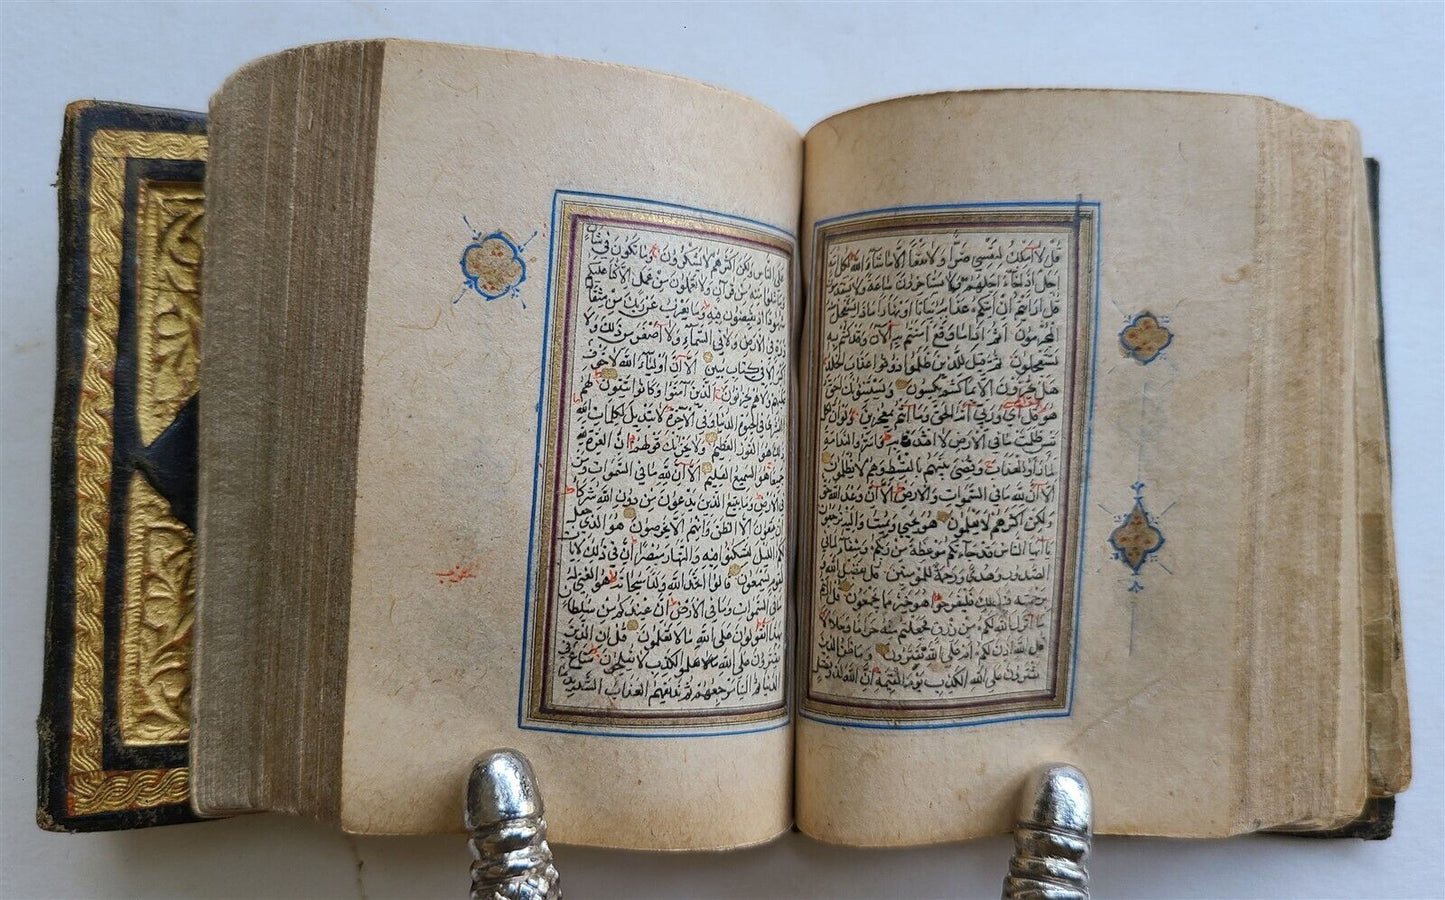 قل لا املك لنفسي ضرا ولا نفعا الا ما شاء الله لكل امة
اجل اذا جاء اجلهم فلا يستاخرون ساعة ولا يستقدمون
قل ارايتم ان اتيكم عذابه بياتا او نهارا ماذا يستعجل منه
المجرمون اثم اذا ما وقع امنتم به آلآن وقد كنتم به
تستعجلون ثم قيل للذين ظلموا ذوقوا عذاب الخلد
هل تجزون الا بما كنتم تكسبون ويستنبئونك احق
هو قل اي وربي انه لحق وما انتم بمعجزين ولو ان لكل
نفس ظلمت ما في الارض لافتدت به واسروا الندامة
لما راوا العذاب وقضي بينهم بالقسط وهم لا يظلمون
الا ان لله ما في السموات والارض الا ان وعد الله حق
ولكن اكثرهم لا يعلمون هو يحيي ويميت واليه ترجعون
يا ايها الناس قد جاءتكم موعظة من ربكم وشفاء لما في
الصدور وهدى ورحمة للمؤمنين قل بفضل الله و
برحمته فبذلك فليفرحوا هو خير مما يجمعون قل ارايتم
ما انزل الله لكم من رزق فجعلتم منه حراما وحلالا قل
آلله اذن لكم ام على الله تفترون وما ظن الذين
يفترون على الله الكذب يوم القيمة ان الله لذو فضل
على الناس ولكن اكثرهم لا يشكرون وما تكون في شان
وما تتلوا منه من قرآن ولا تعملون من عمل الا كنا عليكم
شهودا اذ تفيضون فيه وما يعزب عن ربك من مثقال
ذرة في الارض ولا في السماء ولا اصغر من ذلك ولا
اكبر الا في كتاب مبين الا ان اولياء الله لا خوف
عليهم ولا هم يحزنون الذين آمنوا وكانوا يتقون لهم
البشرى في الحيوة الدنيا وفي الآخرة لا تبديل لكلمات الله
ذلك هو الفوز العظيم ولا يحزنك قولهم ان العزة لله
جميعا هو السميع العليم الا ان لله من في السموات ومن
في الارض وما يتبع الذين يدعون من دون الله شركاء
ان يتبعون الا الظن وان هم الا يخرصون هو الذي جعل
لكم الليل لتسكنوا فيه والنهار مبصرا ان في ذلك لآيات
لقوم يسمعون قالوا اتخذ الله ولدا سبحانه هو الغني له
ما في السموات وما في الارض ان عندكم من سلطان
بهذا اتقولون على الله ما لا تعلمون قل ان الذين
يفترون على الله الكذب لا يفلحون متاع في
الدنيا ثم الينا مرجعهم ثم نذيقهم العذاب الشديد بما